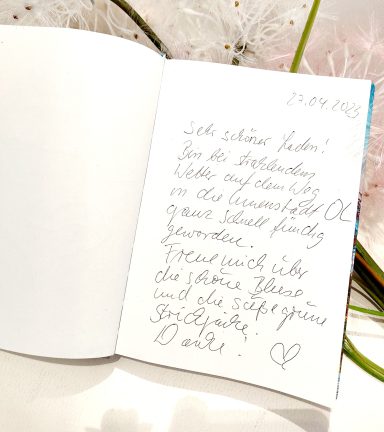 27.04.2023
Sehr schöner Laden!
Bin bei strahlendem
Wetter auf dem Weg
in die Innenstadt OL
ganz schnell fündig
geworden.
Freue mich über
die schöne Bluse
und die süße grüne
Strickjacke!
Danke! ♡